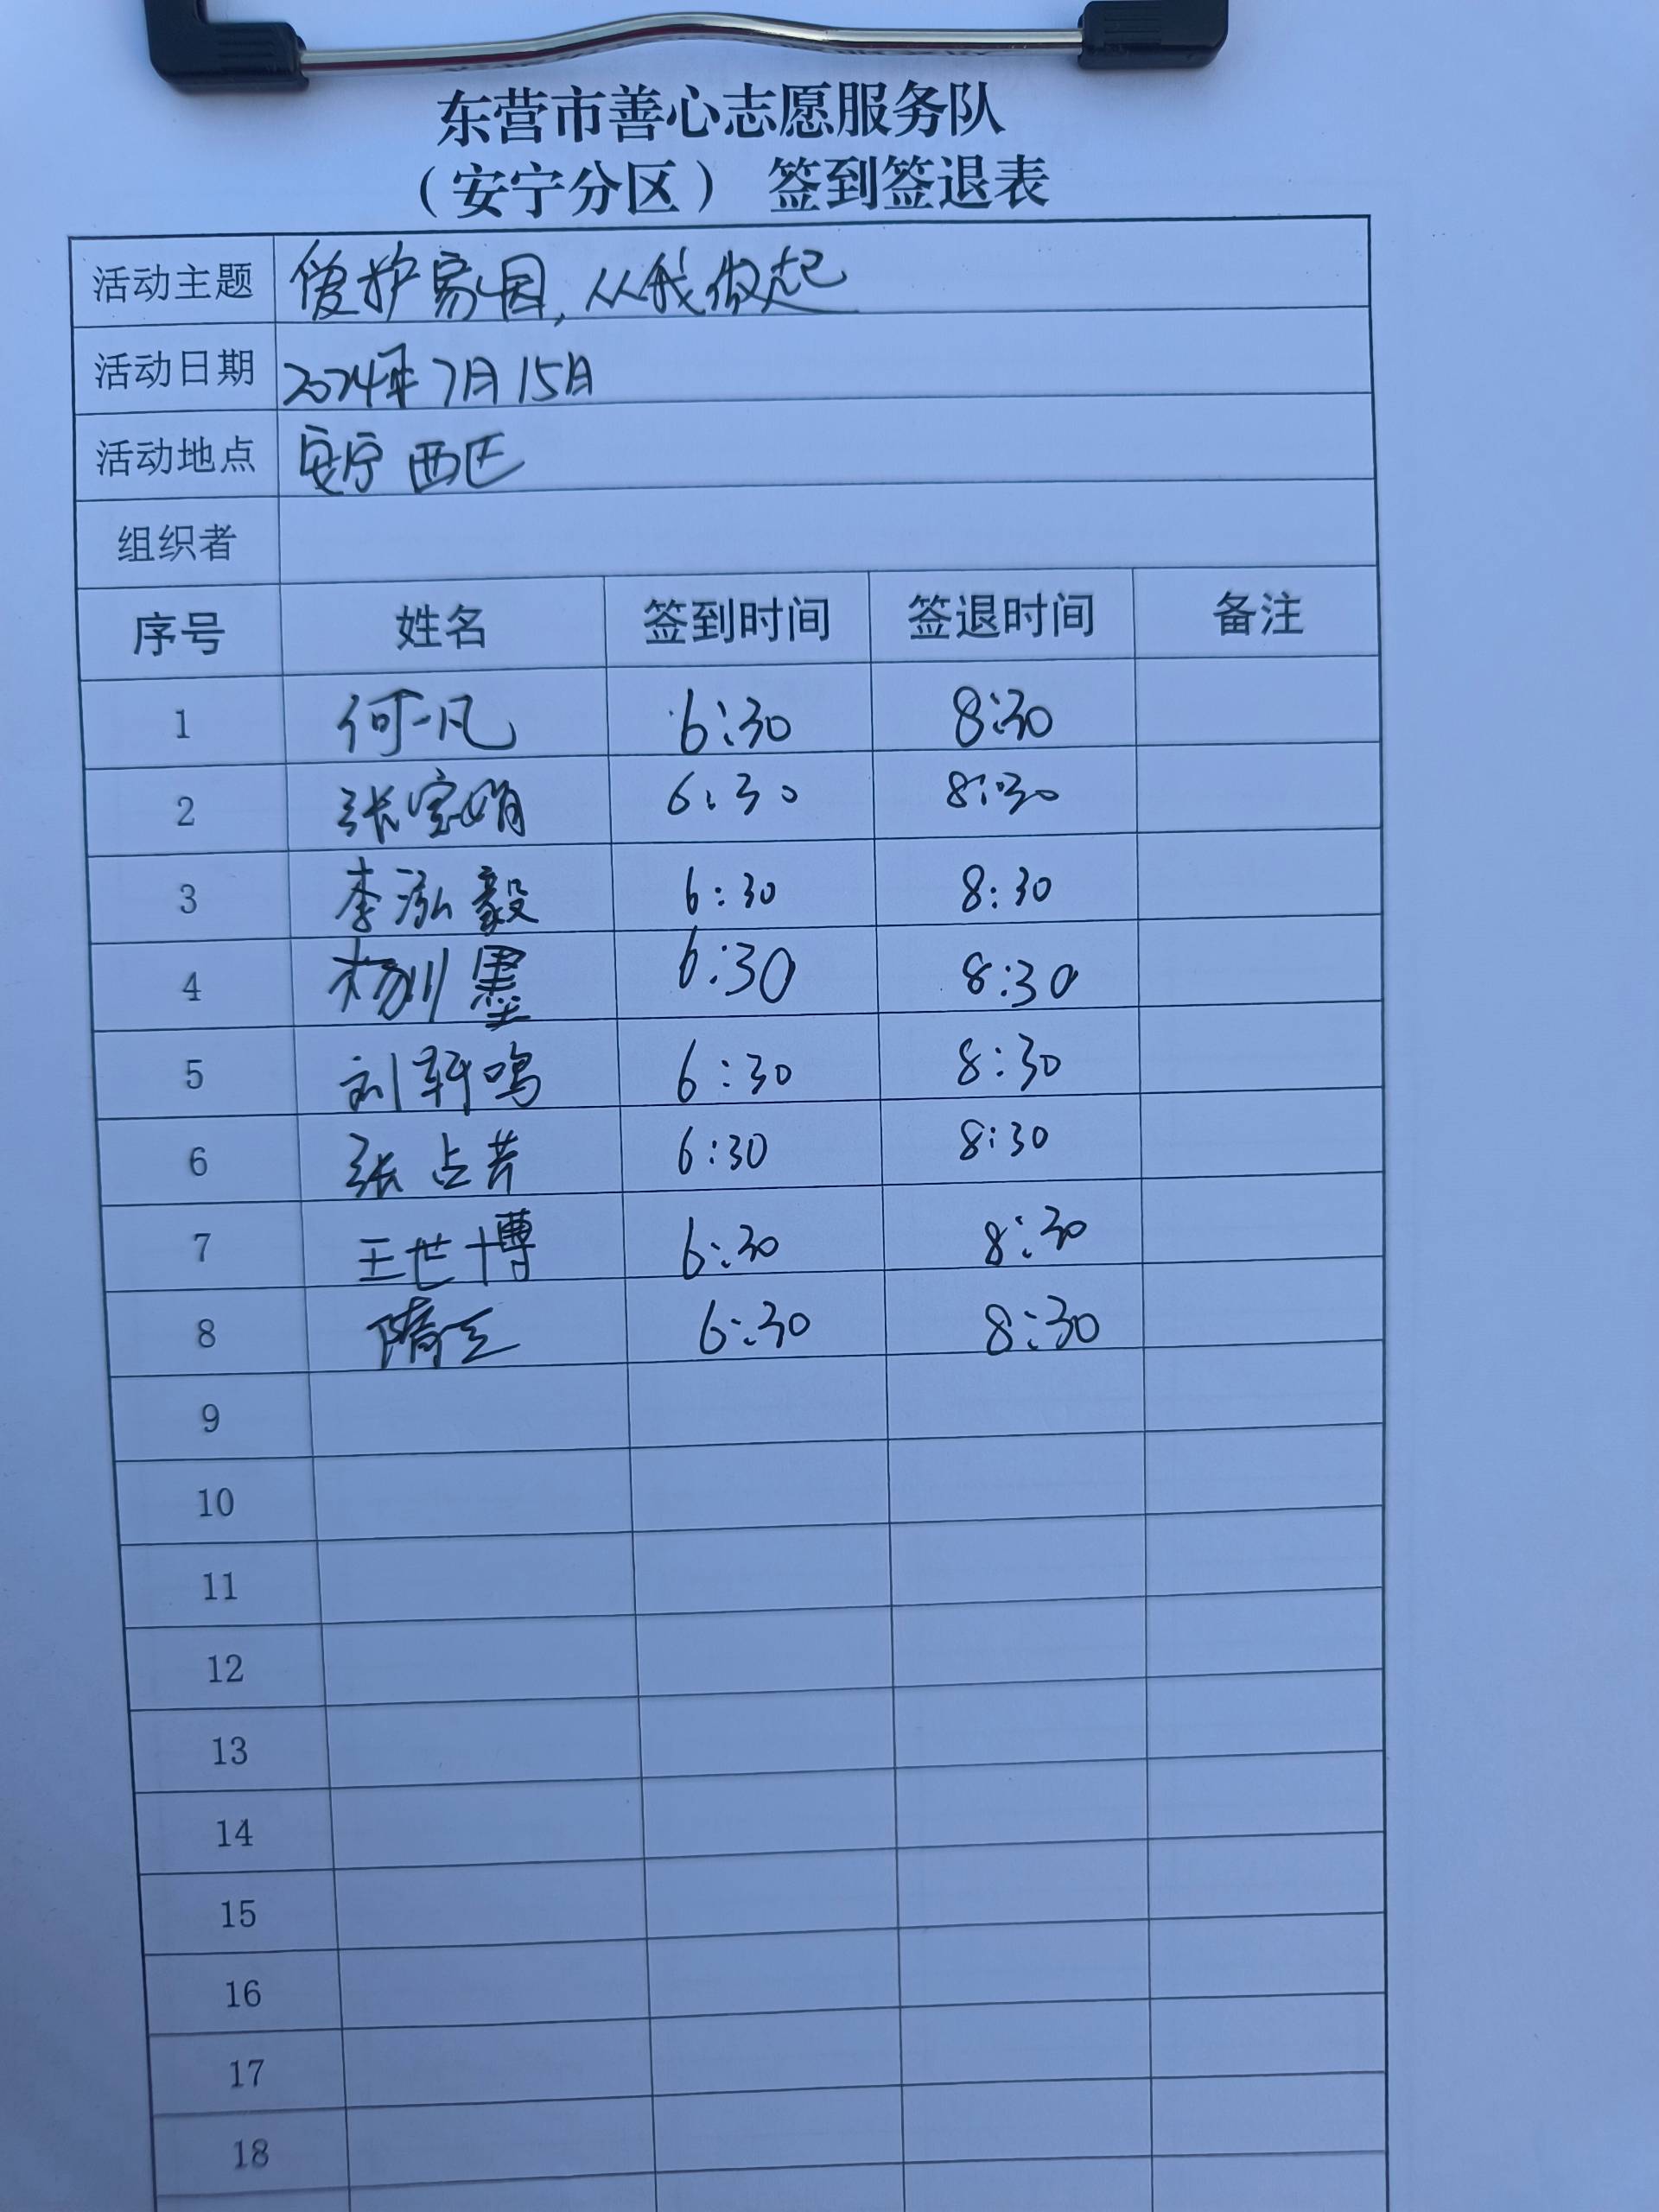 东营市善心志愿服务队
（安宁分区） 签到签退表
活动主题 爱护家园,从我做起
活动日期 2024年7月15日
活动地点 安宁西区
组织者
序号 姓名 签到时间 签退时间 备注
1 何一凡 6:30 8:30
2 张宝娟 6:30 8:30
3 李泓毅 6:30 8:30
4 杨川墨 6:30 8:30
5 刘轩鸣 6:30 8:30
6 张占芹 6:30 8:30
7 王世博 6:30 8:30
8 隋 6:30 8:30
9
10
11
12
13
14
15
16
17
18